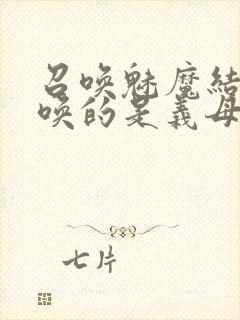 召唤魅魔结
唤的是义母
七片